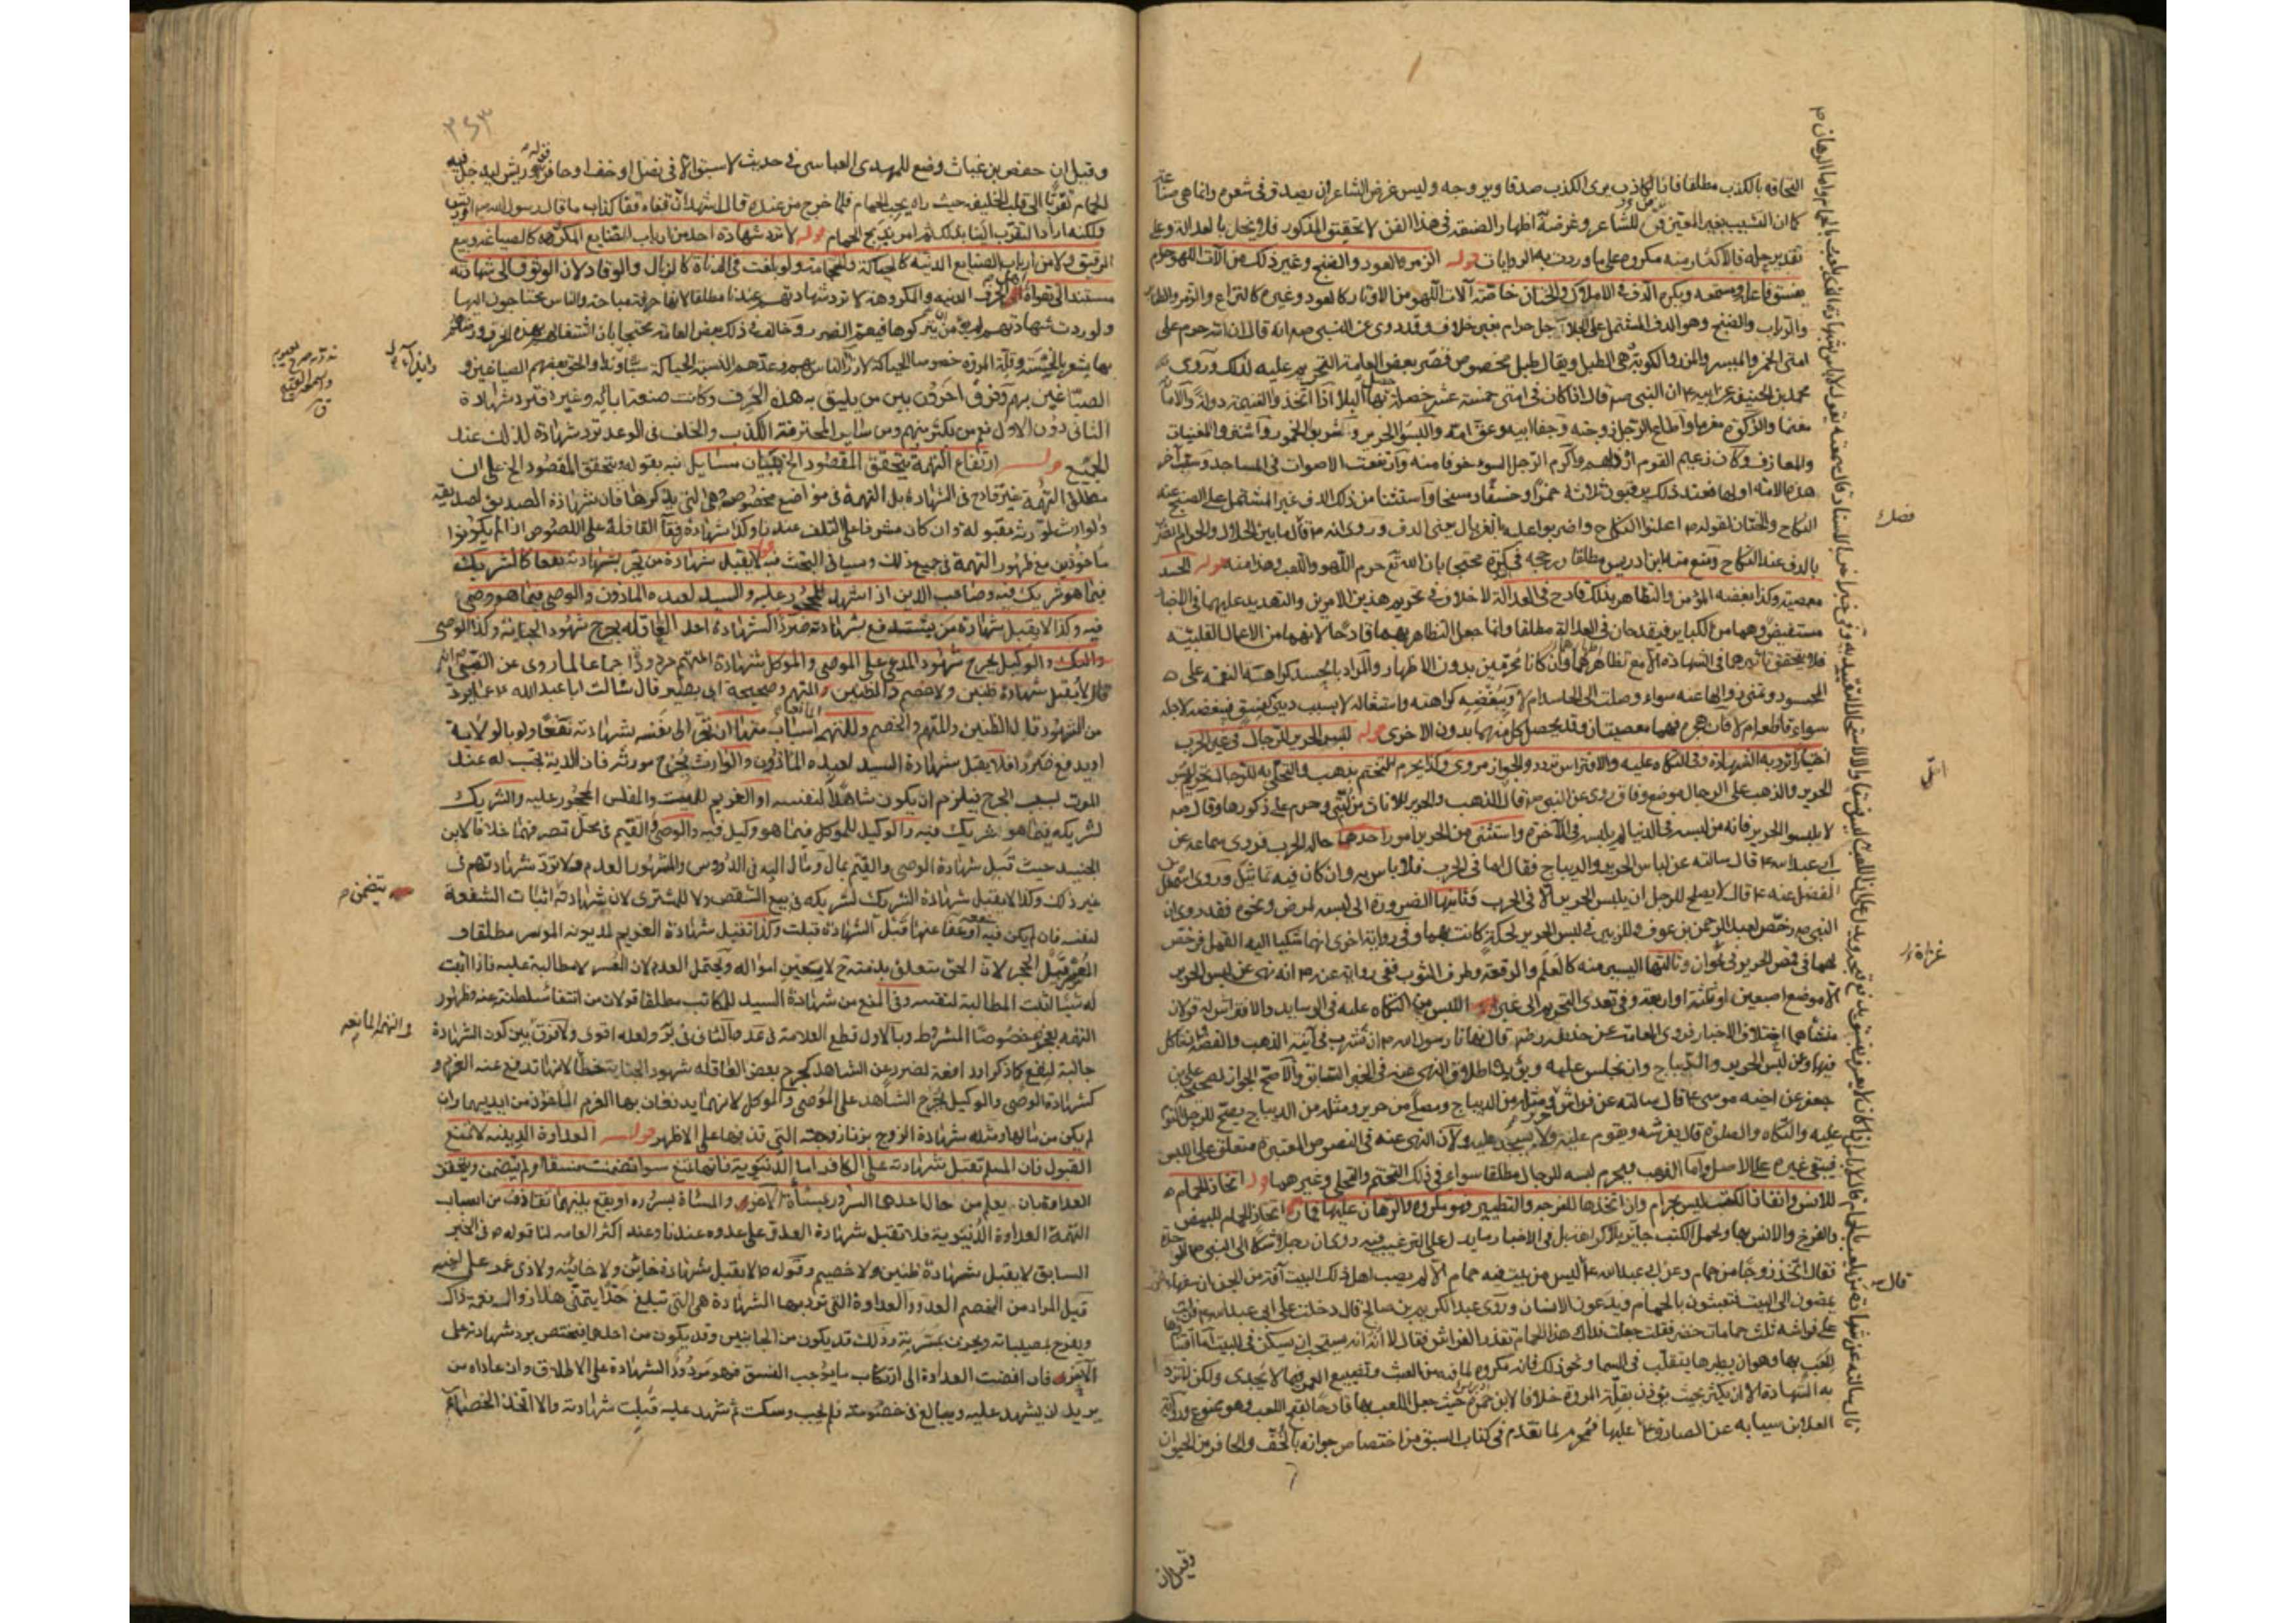 التحاقه بالكذب مطلقا فان الكاذب يرى الكذب صدقا ويروجه وليس غرض الشاعر ان يصدق في شعره وانما هي صناعة
كما ان التشبيب بغير المعين فن للشاعر وغرضه اظهار الصنعة في هذا الفن لا تحقيق المذكور فلا يخل بالعدالة وعلى
تقدير حله فالاكثار منه مكروه على ما وردت به الروايات قوله الزمر والعود والصنج وغير ذلك من آلات اللهو حرام
يفسق فاعله ومستمعه ويكره الدف في الاملاك والختان خاصة آلات اللهو من الاوتار كالعود وغيره كاليراع والزمر والطنابير
والرباب والصنج وهو الدف المشتمل على الجلاجل حرام بغير خلاف وقد روى عن النبي صه انه قال ان الله حرم على
امتى الخمر والميسر والمزر والكوبة هي الطبل ويقال طبل مخصوص فقصر بعض العامة التحريم عليه لذلك وروى
محمد بن الحنيفه عن ابيه ع ان النبي صه قال اذا كان في امتى خمسة عشر خصلة حل بها البلا اذا اتخذوا الغنيمة دولة والامانة
مغنما والزكوة مغرما واطاع الرجل زوجته وجفا اباه وعق امه ولبسوا الحرير وشربوا الخمور واشتروا المغنيات
والمعازف وكان زعيم القوم ارذلهم واكرم الرجل السوء خوفا منه وارتفعت الاصوات في المساجد وسب آخر
هذه الامة اولها فعند ذلك يرقبون ثلاثة حمرا وخسفا ومسخا واستثنا من ذلك الدف غير المشتمل على الصنج عند
النكاح والختان لقوله ص اعلنوا النكاح واضربوا عليه بالغربال يعنى الدف وروى انه ص قال ما بين الحلال والحرام الضرب
بالدف عند النكاح ومنع منه ابن ادريس مطلقا ورجحه في كره محتجا بان الله تع حرم اللهو واللعب وهذا منه قوله الحسد
معصية وكذا بغضه المؤمن والتظاهر بذلك قادح في العدالة لا خلاف في تحريم هذين الامرين والتهديد عليهما في الاخبار
مستفيض وهما من الكبائر فيقدحان في العدالة مطلقا وانما جعل التظاهر بهما قادحا لانهما من الاعمال القلبية
فلا يتحقق تاثيرهما في الشهادة الا مع تظاهرهما وان كانا محرمين بدون الاظهار والمراد بالحسد كراهة النعمة على
المحسود وتمنى زوالها عنه سواء وصلت الى الحاسد ام لا وببغضه كراهته واستثقاله لا بسبب دينى كفسق فيبغضه لاجله
سواء قاطعه ام لا فان هجره فهما معصيتان وقد يحصل كل منهما بدون الاخرى قوله لبس الحرير للرجال في غير الحرب
اختيارا ترد به الشهادة وفى التكاه عليه والافتراش تردد والجواز مروى وكذا يحرم التختم بذهب والتحلى به للرجال تحريم لبس
الحرير والذهب على الرجال موضع وفاق روى عن النبي صه قال الذهب والحرير للاناث من امتى وحرم على ذكورها وقال صه
لا تلبسوا الحرير فانه من لبسه في الدنيا لم يلبسه في الآخرة واستثنى من الحرير امور احدها حالة الحرب فروى سماعة عن
ابى عبد الله ع قال سالته عن لباس الحرير والديباج فقال اما في الحرب فلا باس به وان كان فيه تماثيل وروى اسمعيل بن
الفضل عنه ع قال لا يصلح للرجل ان يلبس الحرير الا في الحرب وثانيها الضرورة الى لبسه لمرض ونحوه فقد روى ان
النبي صه رخص لعبد الرحمن بن عوف وللزبير في لبس الحرير لحكة كانت بهما وفى رواية اخرى انهما شكيا اليه القمل فرخص
لهما في قمص الحرير في غزاة وثالثها اليسير منه كالعلم والرقعة وطرف الثوب ففى رواية عنه ص انه نهى عن لبس الحرير
الا موضع اصبعين او ثلثة او اربعة وفى تعدى التحريم الى غير اللبس من التكاه عليه في الوسايد والافتراش له قولان
منشأهما اختلاف الاخبار فروى العامة عن حذيفه رضه قال نهانا رسول الله ص ان نشرب في آنية الذهب والفضة ان ناكل
فيها وعن لبس الحرير والديباج وان نجلس عليه ويؤيده اطلاق النهى عنه في الخبر السابق والاصح الجواز لصحيحة على بن
جعفر عن اخيه موسى ع قال سالته عن فراش حرير ومثله من الديباج ومصلى حرير ومثله من الديباج يصلح للرجل النوم
عليه والتكاه والصلوة قال يفرشه ويقوم عليه ولا يسجد عليه ولان النهى عنه في النصوص المعتبرة متعلق على اللبس
فيبقى غيره على الاصل واما الذهب فيحرم لبسه للرجال مطلقا سواء في ذلك التختم والتحلى وغيرهما قوله اتخاذ الحمام
للانس وانفاذ الكتب ليس بحرام وان اتخذها للفرجة والتطيير فهو مكروه والرهان عليها قمار اتخاذ الحمام للبيض
والفرخ والانس بها ولحمل الكتب جايز بلا كراهة بل في الاخبار ما يدل على الترغيب فيه روى ان رجلا شكا الى النبي ص الوحدة
فقال اتخذ زوجا من حمام وعن ابى عبد الله ع ليس من بيت فيه حمام الا لم يصب اهل ذلك البيت آفة من الجن ان سفهاء الجن
يعبثون في البيت فيعبثون بالحمام ويدعون الانسان وروى عبد الكريم بن صالح قال دخلت على ابى عبد الله ع فرايت
على فراشه ثلث حمامات خضر فقلت جعلت فداك هذا الحمام تقذر الفراش فقال لا انه يستحب ان يسكن في البيت اما اقتناؤها
للعب بها وهو ان يطيرها يتقلب في السما ونحو ذلك فانه مكروه لما فيه من العبث وتضييع العمر فيما لا يجدى ولكن لا ترد
به الشهادة الا ان يكثر بحيث يؤذن بقلة المروة خلافا لابن حمزة حيث جعل اللعب بها قادحا لقبح اللعب وهو ممنوع ورواية
العلا بن سيابه عن الصادق ع عليها فمحرم لما تقدم في كتاب السبق من اختصاص جوازه بالخف والحافر من الحيوان
فصل
غزاة
قال
وقيل ان
٣٤٣
وقيل ان حفص بن غياث وضع للمهدى العباسى في حديث لا سبق الا في نصل او خف او حافر قوله او ريش ليدخل فيه
الحمام تقربا الى قلب الخليفه حيث راه يحب الحمام فلما خرج من عنده قال اشهد ان قفاه قفا كذاب ما قال رسول الله ص او ريش
ولكنه اراد التقرب الينا بذلك ثم امر بذبح الحمام قوله لا ترد شهادة احد من ارباب الصنايع المكروهه كالصياغة وبيع
الرقيق ولا من ارباب الصنايع الدنيه كالحياكة والحجامة ولو بلغت في الدناة كالزبال والوقاد لان الوثوق الى شهادته
مستند الى تقواه الحرف الدنيه والمكروهه لا ترد شهادتهم عندنا مطلقا لانها حرفة مباحة والناس يحتاجون اليها
ولو ردت شهادتهم لم يؤمن ان يتركوها فيعم الضرر وخالف في ذلك بعض العامه محتجا بان اشتغالهم بهذه الحرف ورضاهم
بها يشعر بالخسة وقلة المروة خصوصا الحياكة لازراء الناس بهم وعدهم النسبة الى الحياكة سبا وايذاء والحق بعضهم الصباغين و
الصباغين بهم وفرق آخرون بين من يليق به هذه الحرف وكانت صنعة آبائه وغيره فترد شهادة
الثانى دون الاول نعم من يكثر منهم ومن ساير المحترفة الكذب والخلف في الوعد ترد شهادة لذلك عند
الجميع قوله ارتفاع التهمة يتحقق المقصود الخ ببيان مسايل نبه بقوله ويتحقق المقصود الخ على ان
مطلق التهمة غير قادح في الشهادة بل التهمة في مواضع مخصوصة وهى التى يذكرها فان شهادة الصديق لصديقه
والوارث لمورثه مقبولة وان كان مشرفا على التلف عندنا وكذا شهادة رفقاء القافلة على اللصوص اذا لم يكونوا
ماخوذين مع ظهور التهمة في جميع ذلك وسياتى البحث فيه قوله لا يقبل شهادة من تجر بشهادته نفعا كالشريك
فيما هو شريك فيه وصاحب الدين اذا شهد للمحجور عليه والسيد لعبده الماذون والوصى فيما هو وصى
فيه وكذا لا يقبل شهادة من يستدفع بشهادته ضررا كشهادة احد العاقله بجرح شهود الجناية وكذا الوصى
والوكيل بجرح شهود المدعى على الموصى والموكل شهادة المتهم مردودة اجماعا لما روى عن النبي صه انه
قال لا يقبل شهادة ظنين ولا خصم والظنين المتهم وصحيحة ابى بصير قال سالت ابا عبد الله ع عما يرد
من الشهود قال الظنين والمتهم والخصم وللتهمة المانعة اسباب منها ان تجر الى نفسه بشهادته نفعا ولو بالولاية
او يدفع ضررا فلا يقبل شهادة السيد لعبده الماذون والوارث بجرح مورثه فان الدية تجب له عند
الموت بسبب الجرح فيلزم ان يكون شاهدا لنفسه او الغريم للميت والمفلس المحجور عليه والشريك
لشريكه فيما هو شريك فيه والوكيل للموكل فيما هو وكيل فيه والوصى والقيم في محل تصرفهما خلافا لابن
الجنيد حيث قبل شهادة الوصى والقيم بمال ومال اليه في الدروس والمشهور العدم ولا ترد شهادتهم في
غير ذلك وكذا لا يقبل شهادة الشريك لشريكه في بيع الشقص ولا للمشترى لان شهادته اثبات الشفعة
لنفسه فان لم يكن فيه شفعة او عفا عنها قبل الشهادة قبلت وكذا تقبل شهادة الغريم لمديونه الموسر مطلقا و
المعسر قبل الحجر لان الحق يتعلق بذمته ح لا بعين امواله ويحتمل العدم لان المعسر لا مطالبة عليه فاذا اثبت
له شيئا اثبت المطالبة لنفسه وفى المنع من شهادة السيد للمكاتب مطلقا قولان من انتفاء سلطنته عنه وظهور
التهمه بعجزه خصوصا المشروط وبالاول قطع العلامة في عد وبالثانى في ير ولعله اقوى ولا فرق بين كون الشهادة
جالبة لنفع كما ذكر او دافعة لضرر عن الشاهد كجرح بعض العاقله شهود الجناية خطا لانها تدفع عنه الغرم و
كشهادة الوصى والوكيل بجرح الشاهد على الموصى والموكل لانهما يدفعان بها الغرم الماخوذ من ايديهما وان
لم يكن من مالهما ومثله شهادة الزوج بزنا زوجته التى قذفها على الاظهر قوله العداوة الدينيه لا تمنع
القبول فان المسلم تقبل شهادته على الكافر اما الدنيوية فانها تمنع سوا تضمنت فسقا او لم يتضمن ويتحقق
العداوة بان يعلم من حال احدهما السرور بمسأة الآخر والمساة بسروره او يقع بينهما تقاذف من اسباب
التهمة العداوة الدنيوية فلا تقبل شهادة العدو على عدوه عندنا وعند اكثر العامه لنا قوله ص في الخبر
السابق لا يقبل شهادة ظنين ولا خصيم وقوله ص لا يقبل شهادة خاين ولا خاينه ولا ذى غمر على اخيه
قيل المراد من الخصم العدو والعداوة التى ترد بها الشهادة هى التى تبلغ حدا يتمنى هذا زوال نعمة ذاك
ويفرح بمصيباته ويحزن بمسراته وذلك قد يكون من الجانبين وقد يكون من احدهما فيختص برد شهادته على
الآخر فان افضت العداوة الى ارتكاب ما يوجب الفسق فهو مردود الشهادة على الاطلاق وان عاداه من
يريد ان يشهد عليه ويبالغ في خصومته فلم يجب وسكت ثم شهد عليه قبلت شهادته والا اتخذ الخصماء
يتضمن
والتهمة المانعه